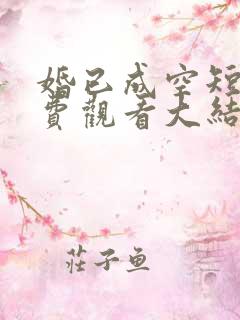 婚已成空短
費觀看大結
莊子魚